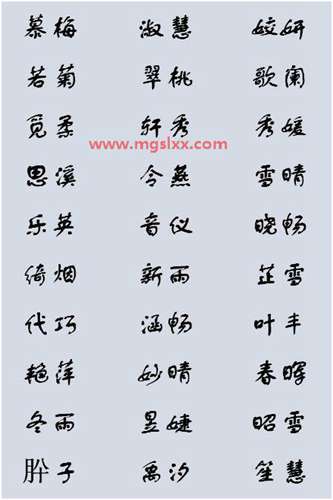 慕梅 淑慧 姣妍
若菊 翠桃 歌阑
觅柔 轩秀 秀媛
www.mgslxx.com
思溪 令燕 雪晴
乐英 音仪 晓畅
绮烟 新雨 芷雪
代巧 涵畅 叶丰
艳萍 妙晴 春晖
冬雨 昱婕 昭雪
子 禹汐 笙慧